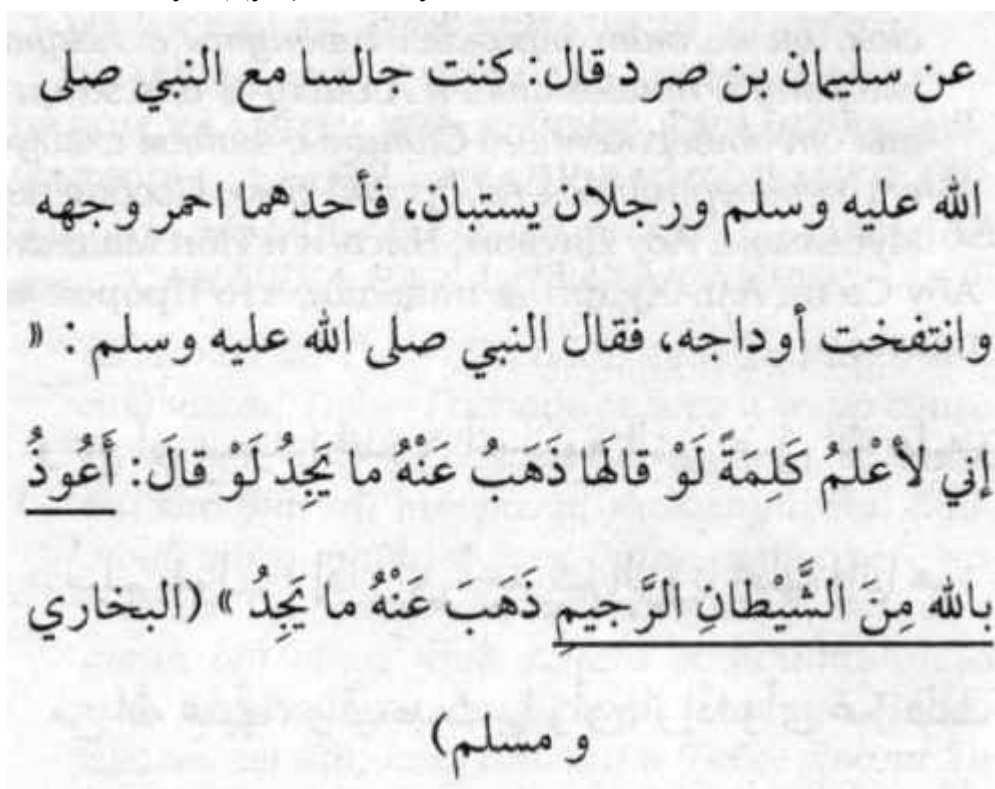 عن سليمان بن صرد قال: كنت جالسا مع النبي صلى
الله عليه وسلم ورجلان يستبان، فأحدهما احمر وجهه
وانتفخت أوداجه، فقال النبي صلى الله عليه وسلم : «
إني لأعْلمُ كَلِمَةً لَوْ قالَهَا ذَهَبَ عَنْهُ ما يَجِدُ لَوْ قالَ: أَعُوذُ
بالله مِنَ الشَّيْطانِ الرَّجيمِ ذَهَبَ عَنْهُ ما يَجِدُ » (البخاري
و مسلم)